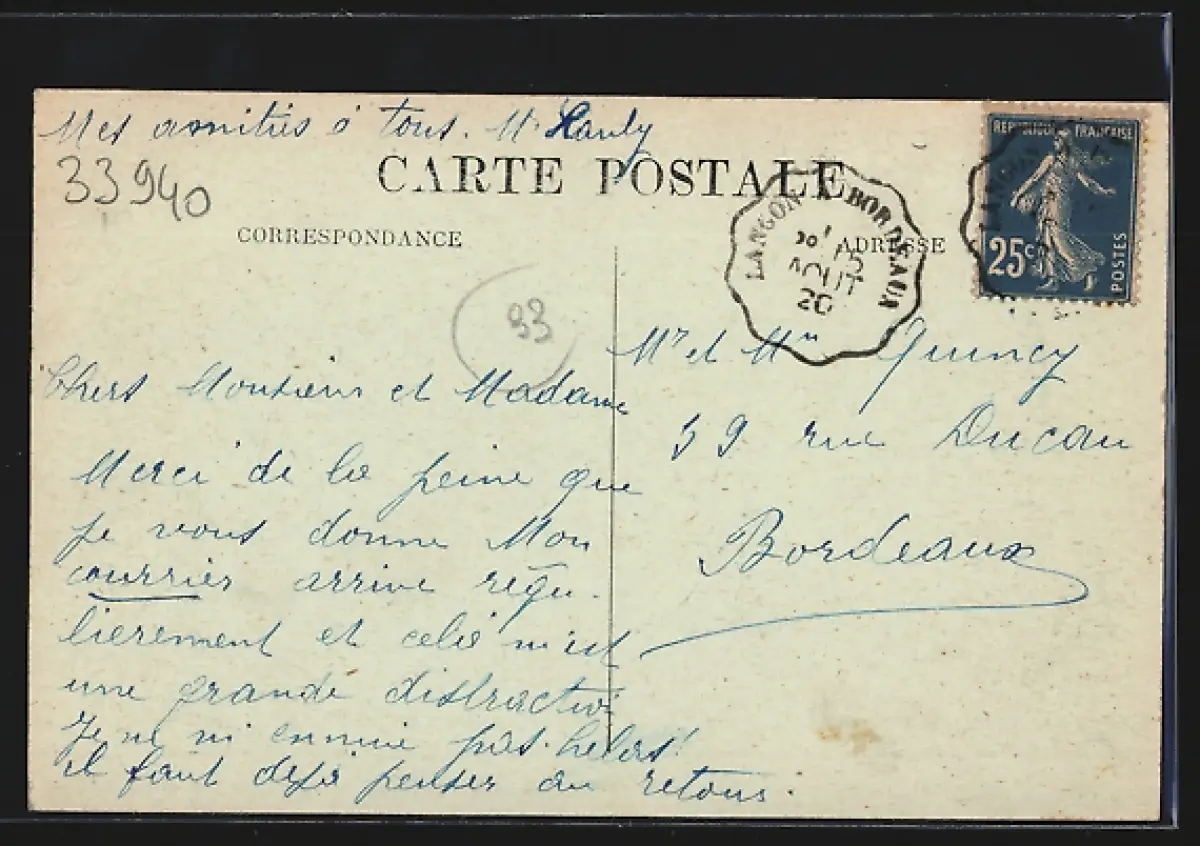 Mes amitiés à tous. M. Hauly
33940
CARTE POSTALE
CORRESPONDANCE
ADRESSE
LANGON A BORDEAUX
AOUT
20
REPUBLIQUE FRANÇAISE
25c
POSTES
LANGON
33
Mr et Mme Quincy
59 rue Ducau
Bordeaux
Chers Monsieur et Madame
Merci de la peine que
je vous donne Mon
courrier arrive régu-
lièrement et cela m'est
une grande distraction
Je ne m'ennuie pas. helas!
il faut déjà penser au retour.